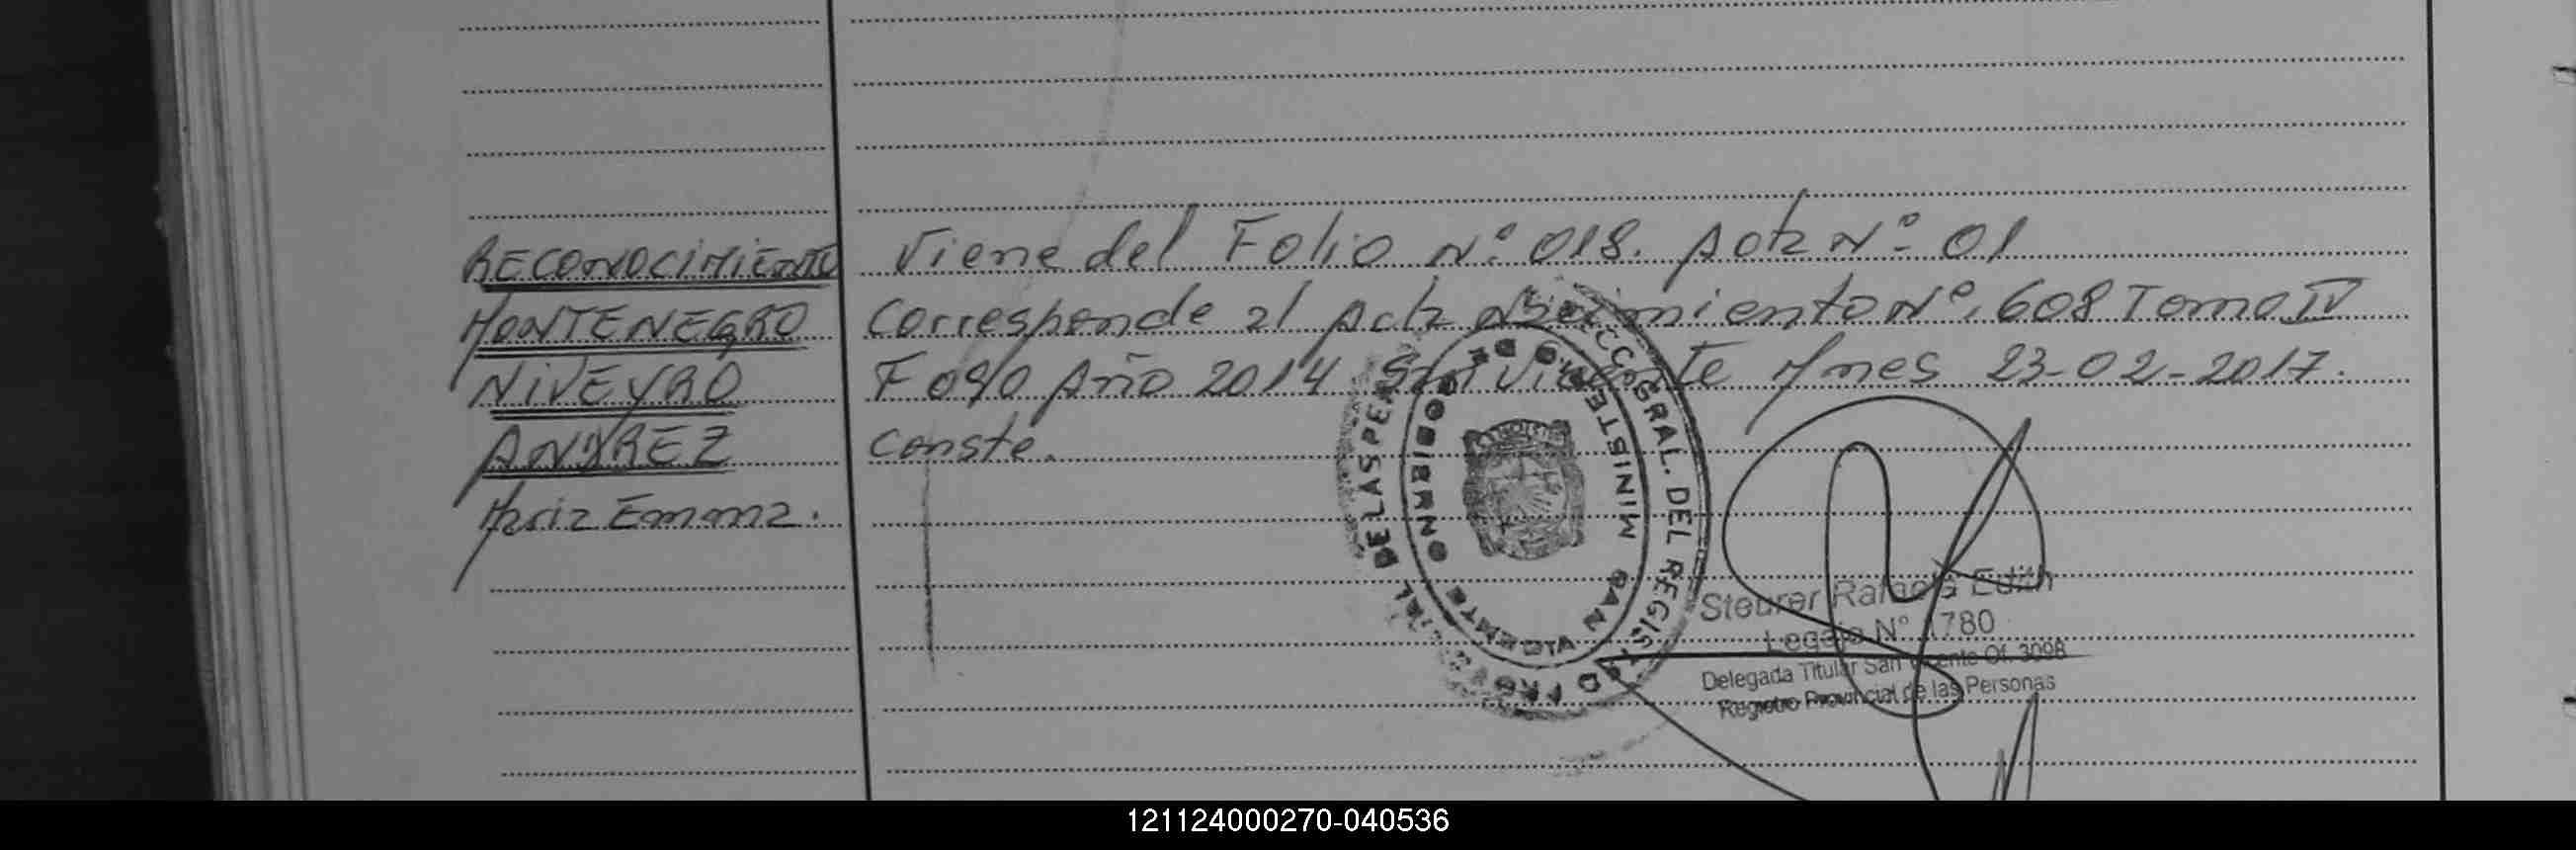 RECONOCIMIENTO Viene del Folio Nº 018. Acta Nº 01
MONTENEGRO Corresponde al Acta Nacimiento Nº 608 Tomo IV
NIVEYRO Fº 090 Año 2014 San Vicente Mnes 23-02-2017.
ANDREZ Conste.
Maria Emma.
DIRECC. GRAL. DEL REGISTRO PROV. DE LAS PER
MINISTERIO DE GOBIERNO
SAN VICENTE
Steurer Ramona Edith
Legajo N° 1780
Delegada Titular San Vicente Of. 309B
Registro Provincial de las Personas
121124000270-040536